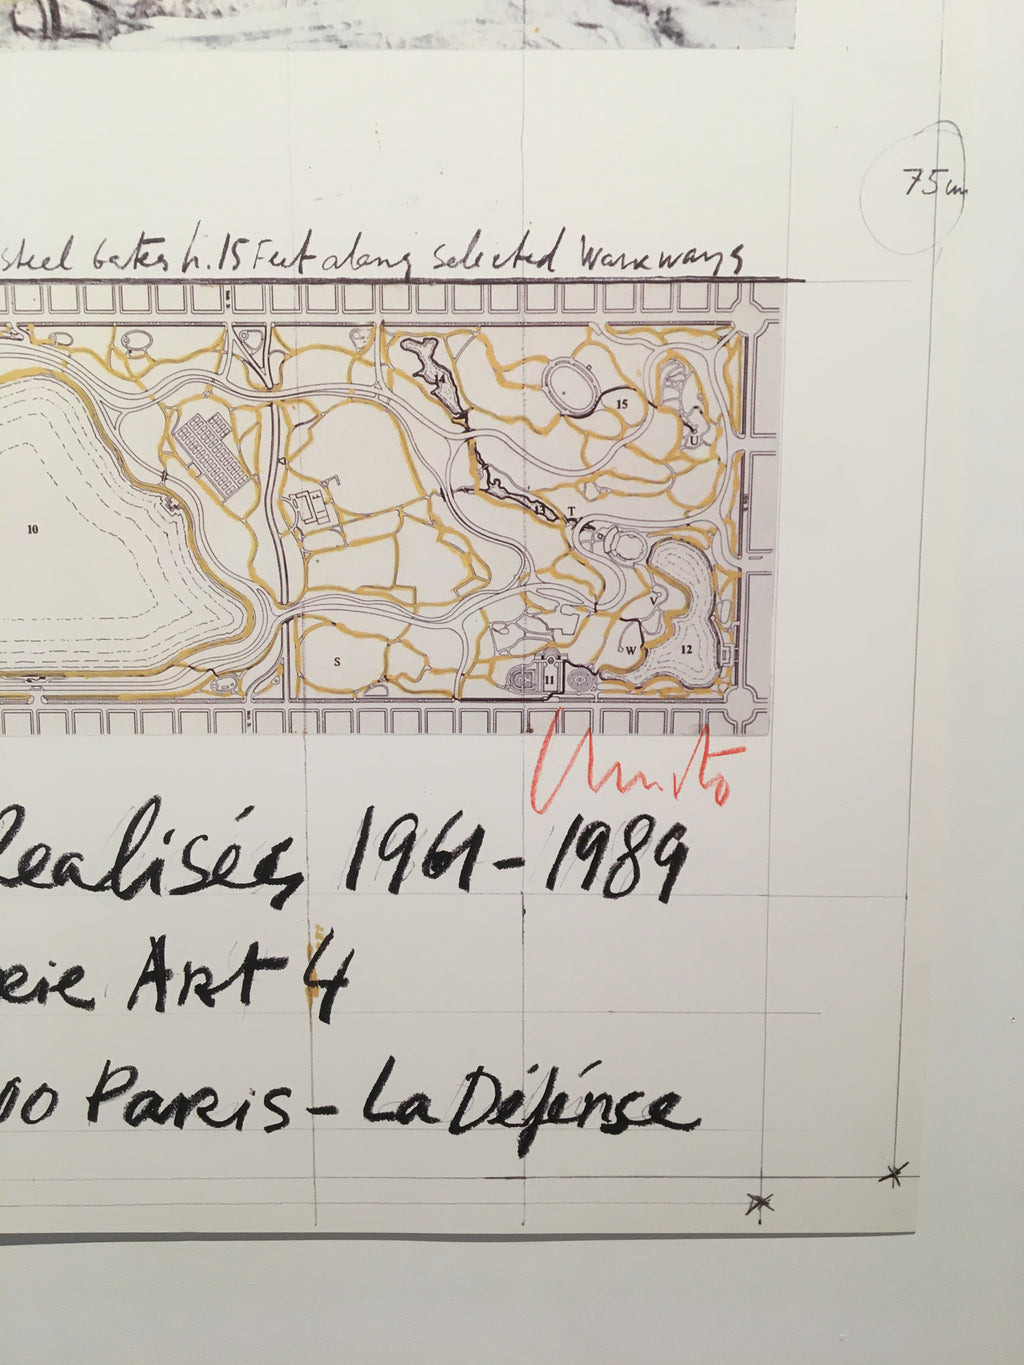 75cm
steel Gates h.15 Feet along selected Walkways
14
15
U
10
13
T
V
W
12
S
11
Christo
Realisées 1961-1989
erie Art 4
00 Paris - La Défénse